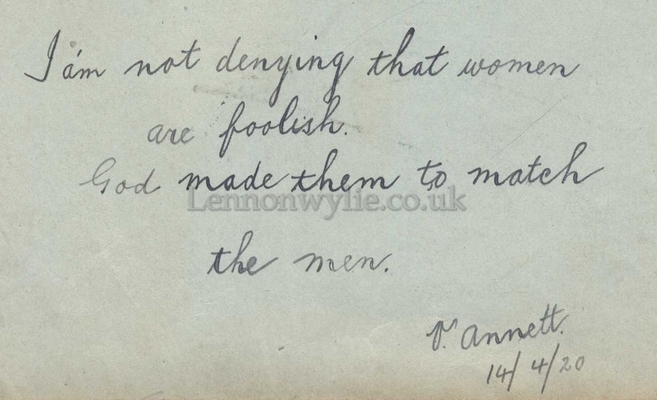 I am not denying that women
are foolish.
God made them to match
Lennonwylie.co.uk
the men.
V. Annett.
14/4/20